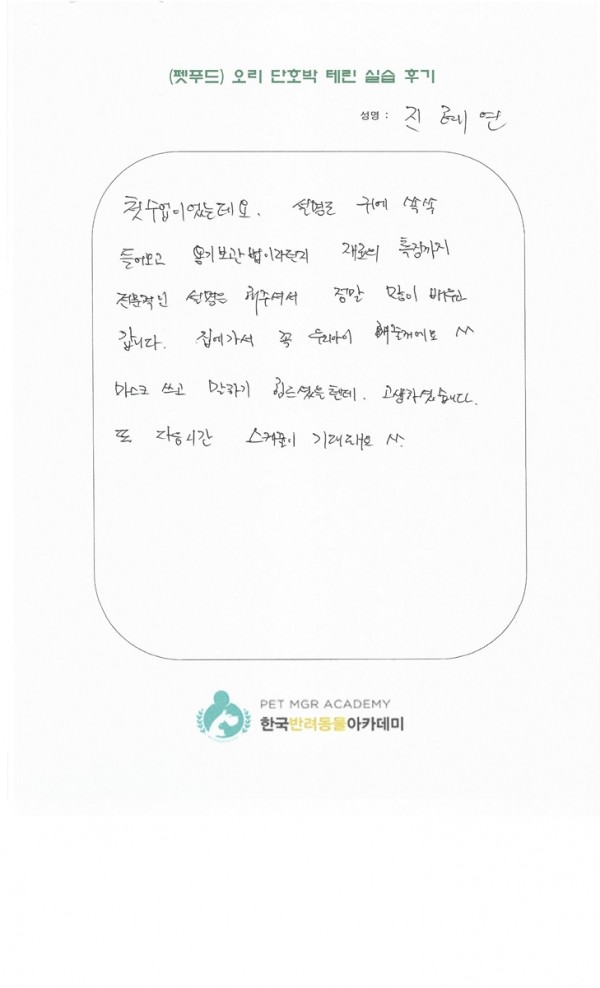 (펫푸드) 오리 단호박 테린 실습 후기
성명 : 진혜연
첫수업이었는데요. 설명도 귀에 쏙쏙
들어오고 용기보관법이라던지 재료의 특징까지
전문적인 설명을 해주셔서 정말 많이 배우고
갑니다. 집에가서 꼭 우리아이 해줄께에요 ^^
마스크 쓰고 말하기 힘드셨을텐데. 고생하셨습니다.
또 다음시간 스케쥴이 기대돼요 ^^.
PET MGR ACADEMY
한국반려동물아카데미